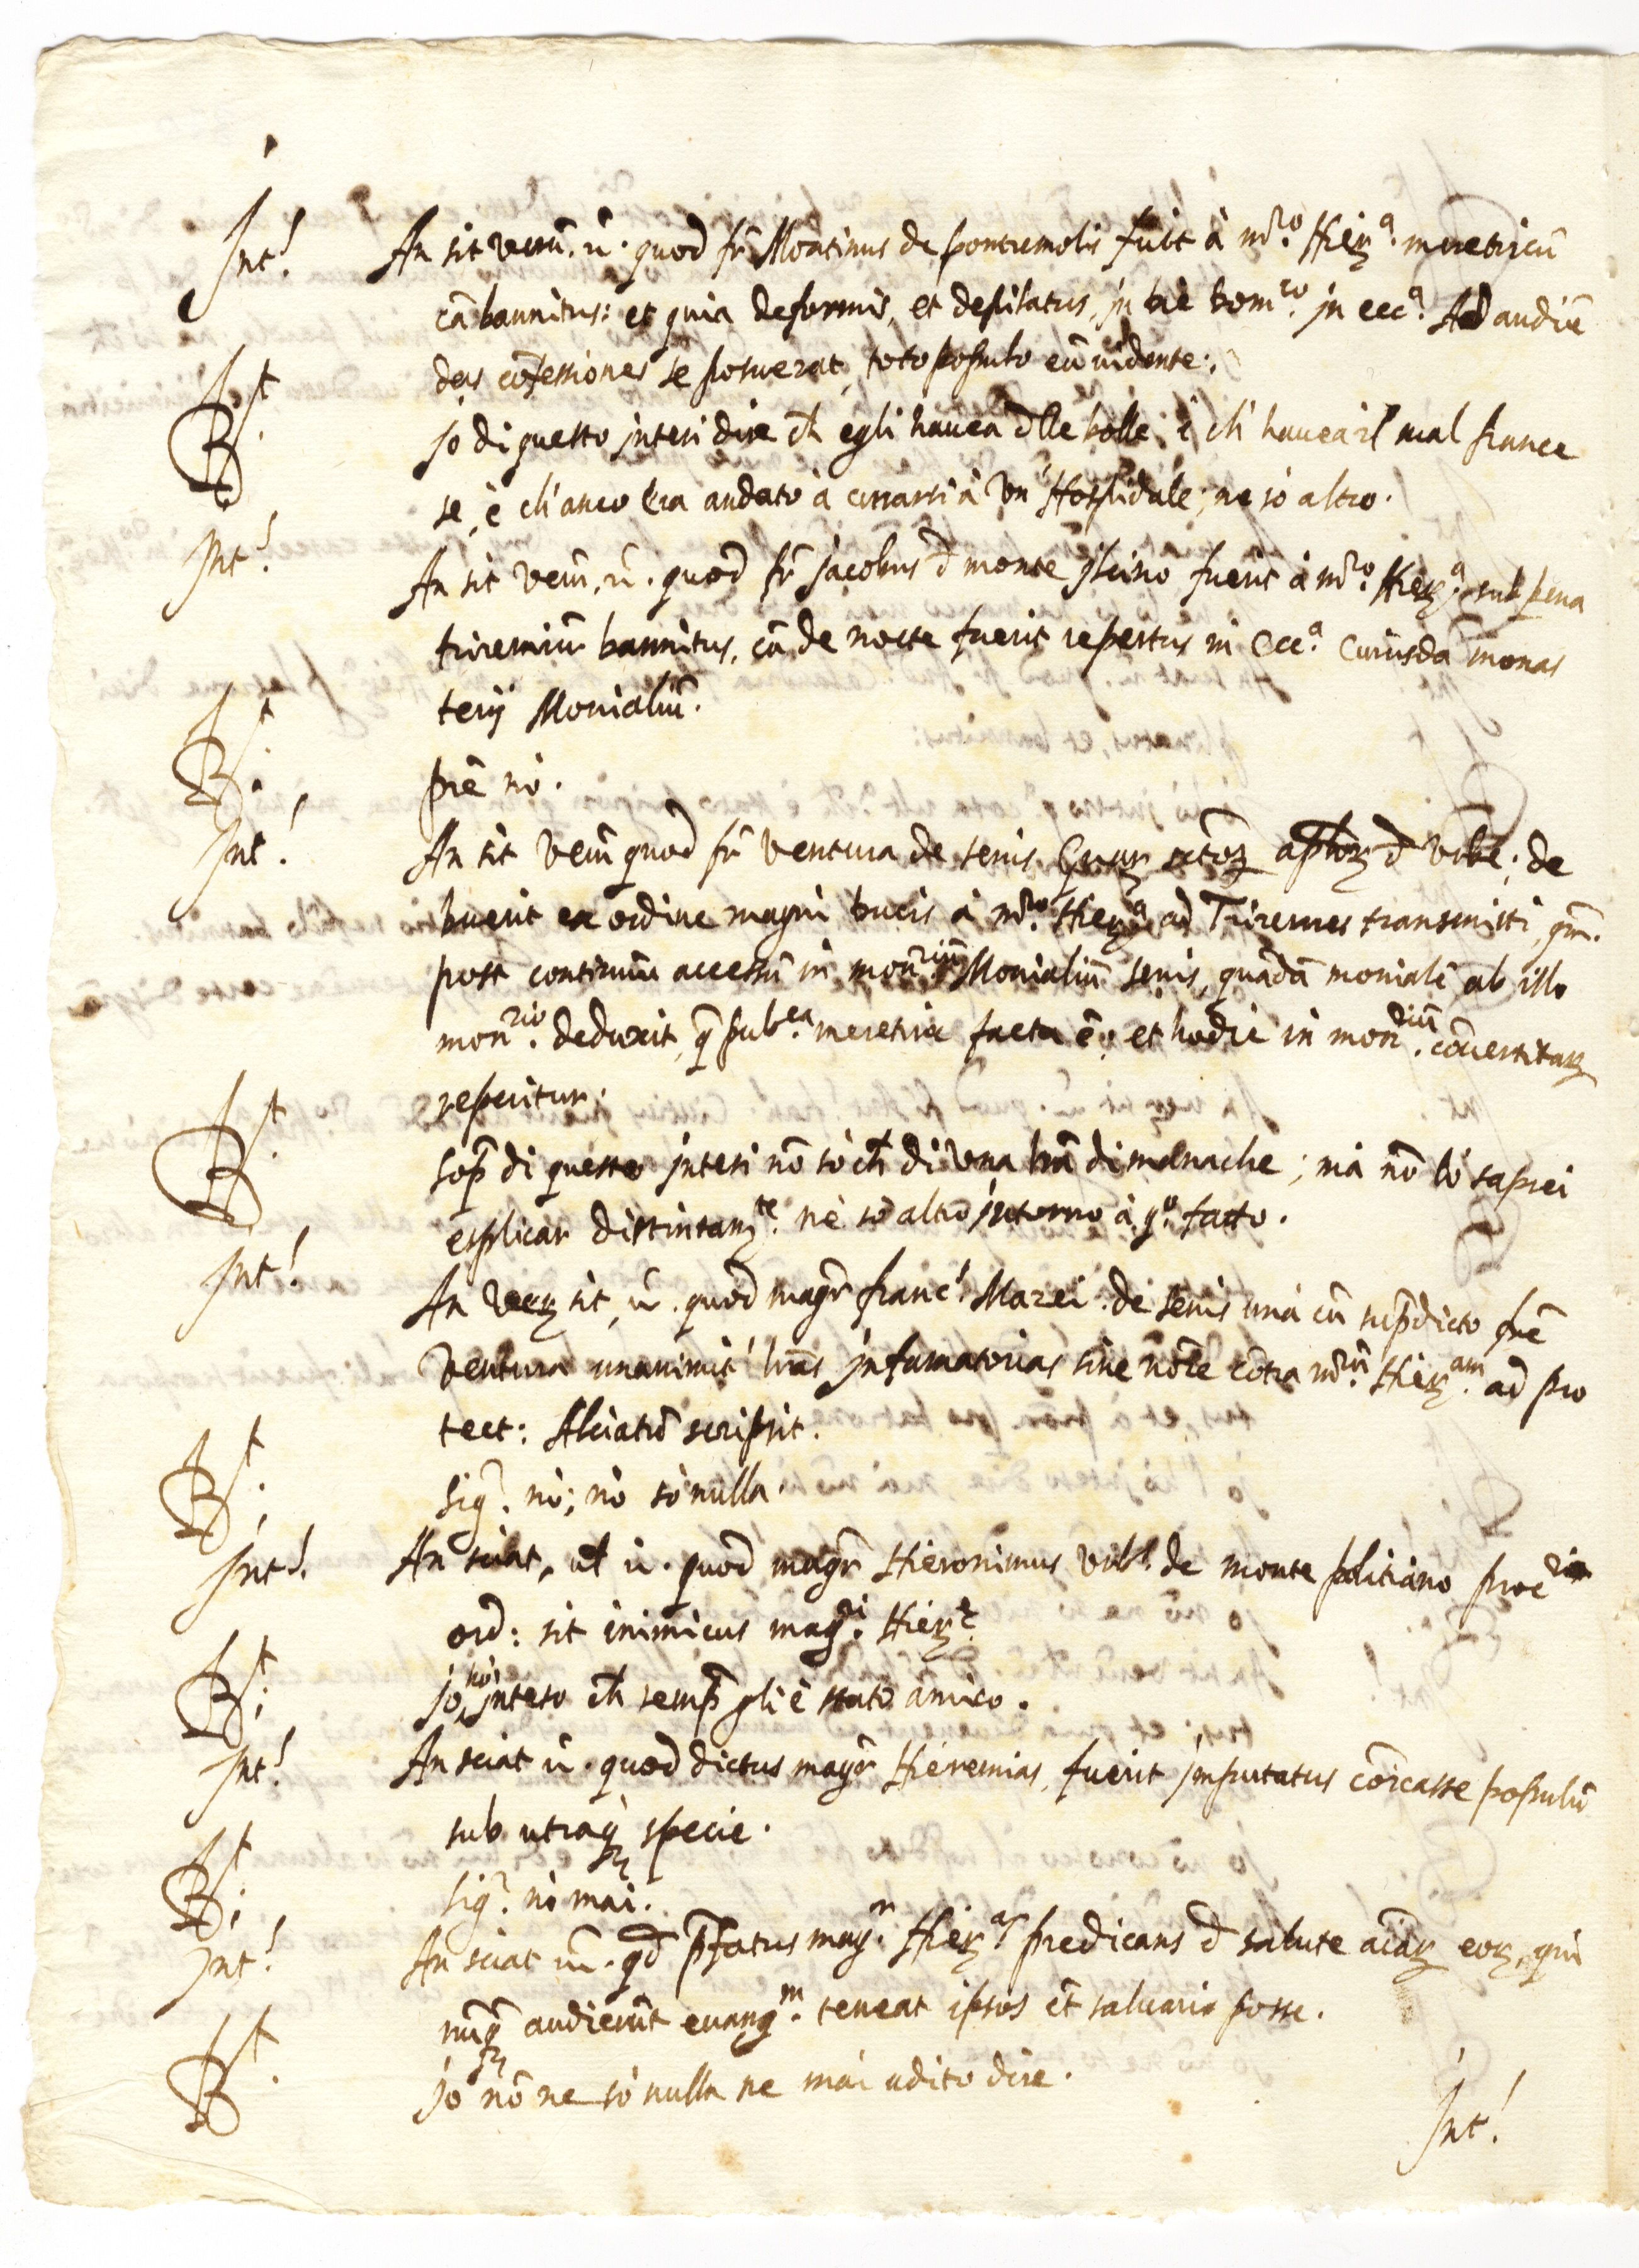 Int.
An sit verũ. ũ. quod fr̃ Montinus de pontremolis fuit à mr̃o. Hierª. meretricũ
cã bannitus: et quia deformis, et depilatus, in die domco. in eccª. Ad audiẽ
das cõfessiones se posuerat, toto populo eũ uidente:
Rt.
Jo di questo intesi dire ch̃ egli hauea d̃lle bolle, è ch'hauea il mal france
se, è ch'anco era andato à curarsi à un' Hospidale; ne sò altro.
Int.
An sit verũ, ũ. quod fr̃ Jacobus d̃ monte ilcino fuerit à mr̃o. Hierª. sub pena
triremiũ bannitus, cũ de nocte fuerit repertus in eccª. cuiusdã monas
terij Monialiũ.
Rt.
prẽ nò.
Int.
An sit verũ quod fr̃ Ventura de senis Guar. sctor. aplor. d̃ urbe; de
buerit ex ordine magni ducis à mr̃o. Hierª. ad Triremes transmitti, qm̃.
post continuũ accessũ in monriũ. Monialiũ senis, quãdã monialẽ ab illo
monrio. deduxit, q̃ pubca. meretrix facta ẽ; et hodie in monriũ. cõuertitar.
reperitur.
Rt.
Sop̃ di questo intesi nõ sò ch̃ di una lr̃a di monache; mà nõ lo saprei
esplicar distintamte. nè sò altro intorno à qo. fatto.
Int.
An ver. sit, ũ. quod magr̃ franc. Mazei de senis unà cũ sup̃dicto fr̃e
Ventura unanimit' lr̃as infamatorias sine nõie cõtra mr̃ũ. Hieram. ad pro
tect: Alciatũ scripsit.
Rt.
Sigr. nò; nò sò nulla.
Int.
An sciat, ut ũ. quod magr̃ Hieronimus de monte politiano procr
ord: sit inimicus magri. Hierę.
Rt.
Jo hò inteso ch̃ semp̃ gli è stato amico.
Int.
An sciat ũ. quod dictus magr̃ Hieremias, fuerit imputatus cõicasse populũ
sub utraq̃ specie.
Rt.
Sigr. nò mai.
Int.
An sciat ũ. qd̃ p̃fatus magr. Hieras predicans d̃ salute aĩar. eor. qui
nũq̃ audierũt euangm. teneat ipsos ẽt saluari posse.
Rt.
Jo nõ ne sò nulla ne mai udito dire.
Int.